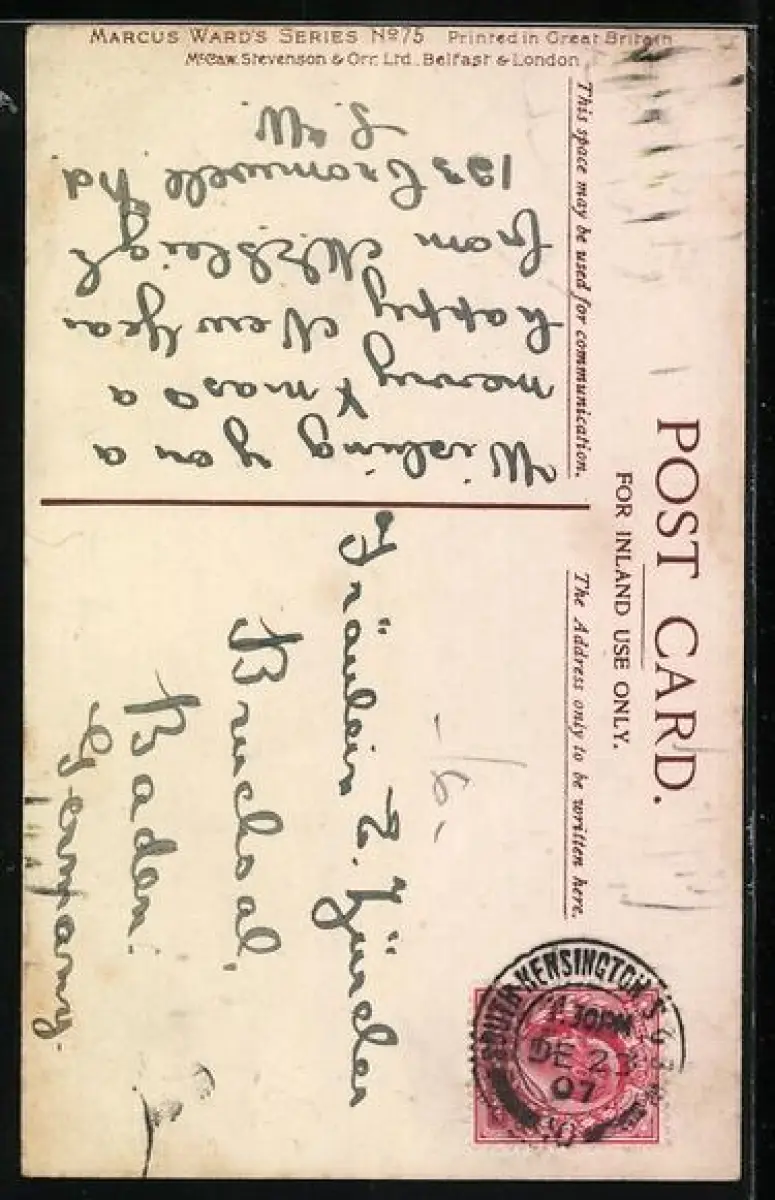 MARCUS WARD'S SERIES No 75 Printed in Great Britain
McCaw, Stevenson & Orr, Ltd., Belfast & London
POST CARD.
FOR INLAND USE ONLY.
This space may be used for communication.
The Address only to be written here.
Wishing you a
merry Xmas & a
happy New Year
from
123 Cromwell Rd
S.W.
Fräulein E.
Bruchsal,
Baden.
Germany.
SOUTH KENSINGTON S.
1.30PM
DE 23
07